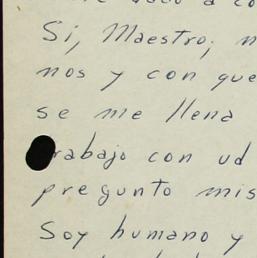 a co
Si, Maestro;
nos y con que
se me llena
rabajo con ud
pregunto mis
Soy humano y